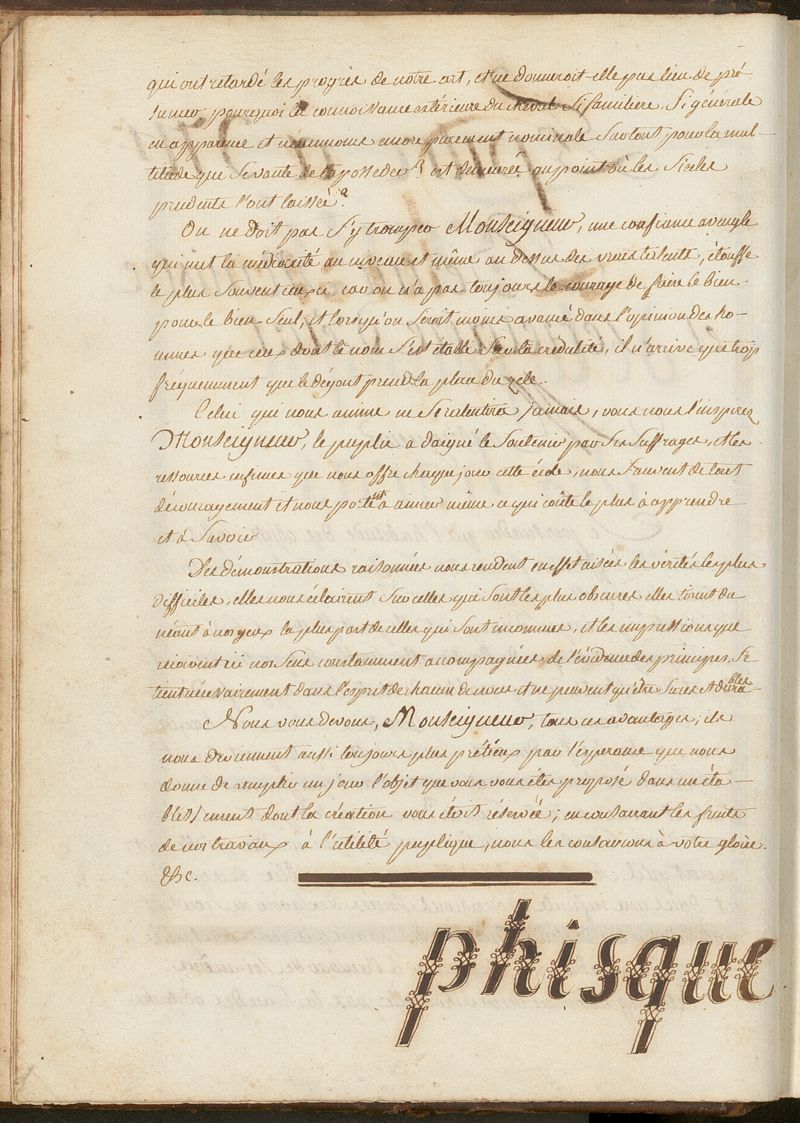 qui ont retardé les progrès de notre art, et ne donneroit-elle pas lieu de pré-
sumer pourquoi la connoissance extérieure du cheval si familière, si générale
en apparence et néanmoins encore purement nominale surtout pour la mul-
titude qui se vante de la posseder, est demeurée au point où les siecles
prudents l'ont laissée?
On ne doit pas s'y tromper Monseigneur, une confiance aveugle
qui met la médiocrité au niveau et même au dessus des vrais talents, étouffe
le plus souvent ceux ci car on n'a pas toujours le courage de faire le bien
pour le bien seul, et lorsqu'on seroit moins avancé dans l'opinion des ho-
mmes que ceux dont le nom s'est établi sur la crédulité, il n'arrive que trop
fréquemment que le dégout prend la place du zele.
Celui qui nous anime ne se ralentira jamais, vous nous l'inspirez
Monseigneur, le puplic a daigné le soutenir par ses suffrages, et les
ressources infinies que nous offre chaque jour cette école, nous sauvent de tout
découragement et nous portent à aimer même ce qui coûte le plus à apprendre
et à savoir
Des démonstrations raisonnées nous rendent en effet aisées les vérités les plus
difficiles, elles nous éclairent sur celles qui sont les plus obscures elles tirent du
néant à nos yeux la plus part de celles qui sont inconnues, et les impressions que
reçoivent ici nos sens constamment accompagnées de l'évidence des principes, se
lient nécessairement dans l'esprit de chacun de nous et ne peuvent qu'être sures et durables
Nous vous devons, Monseigneur, tous ces avantages; ils
nous deviennent aussi toujours plus prétieux par l'esperance que nous
donne de remplir un jour l'objet que vous vous êtes proposé dans un éta-
blissement dont la création vous étoit réservée; en consacrant les fruits
de nos travaux à l'utilité puplique, nous les consacrons à votre gloire.
&c.
phisque